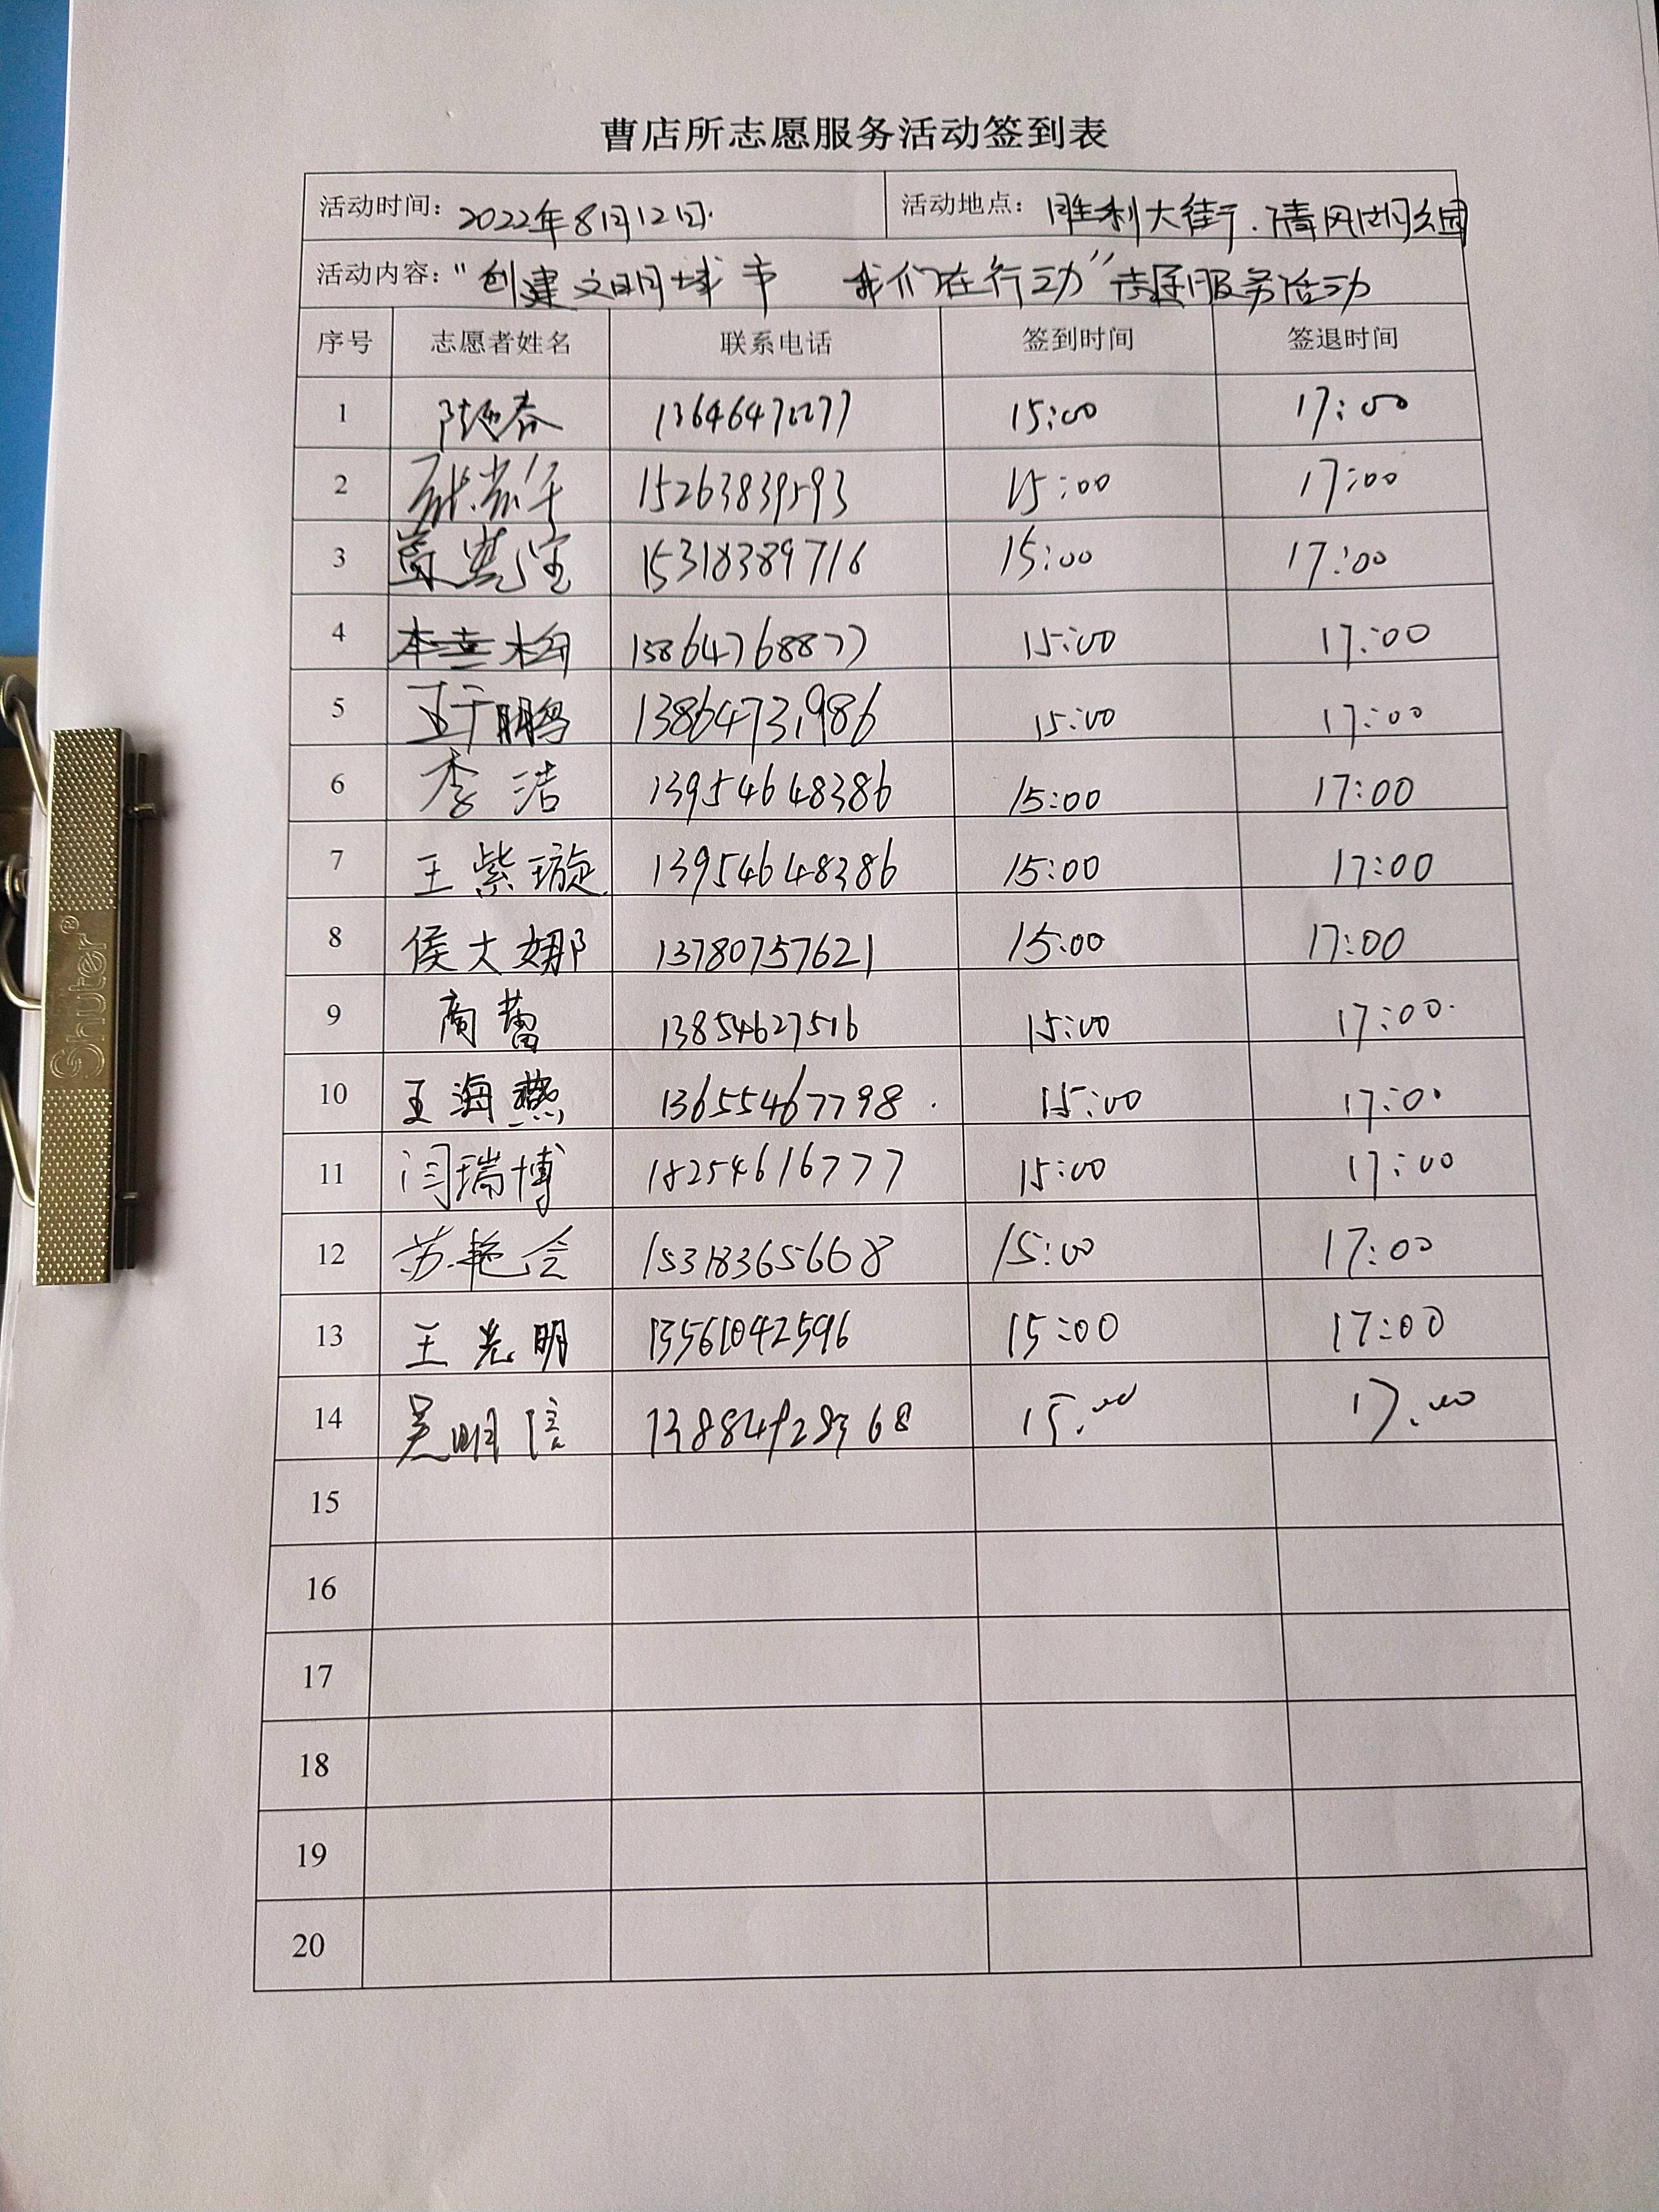 曹店所志愿服务活动签到表
活动时间：2022年8月12日. 活动地点：胜利大街.清风湖公园
活动内容："创建文明城市 我们在行动"志愿服务活动
序号 志愿者姓名 联系电话 签到时间 签退时间
1 15:00 17:00
2 15263839593 15:00 17:00
3 15318389716 15:00 17:00
4 13864768877 15:00 17:00
5 王于鹏 13864731986 15:00 17:00
6 李洁 13954648386 15:00 17:00
7 王紫璇 13954648386 15:00 17:00
8 侯大娜 13780757621 15:00 17:00
9 商蕾 13854627516 15:00 17:00
10 王海燕 13655467798 15:00 17:00
11 闫瑞博 18254616777 15:00 17:00
12 苏艳会 15318365668 15:00 17:00
13 王光明 13561042596 15:00 17:00
14 吴明信 15:00 17:00
15
16
17
18
19
20
Shuter®